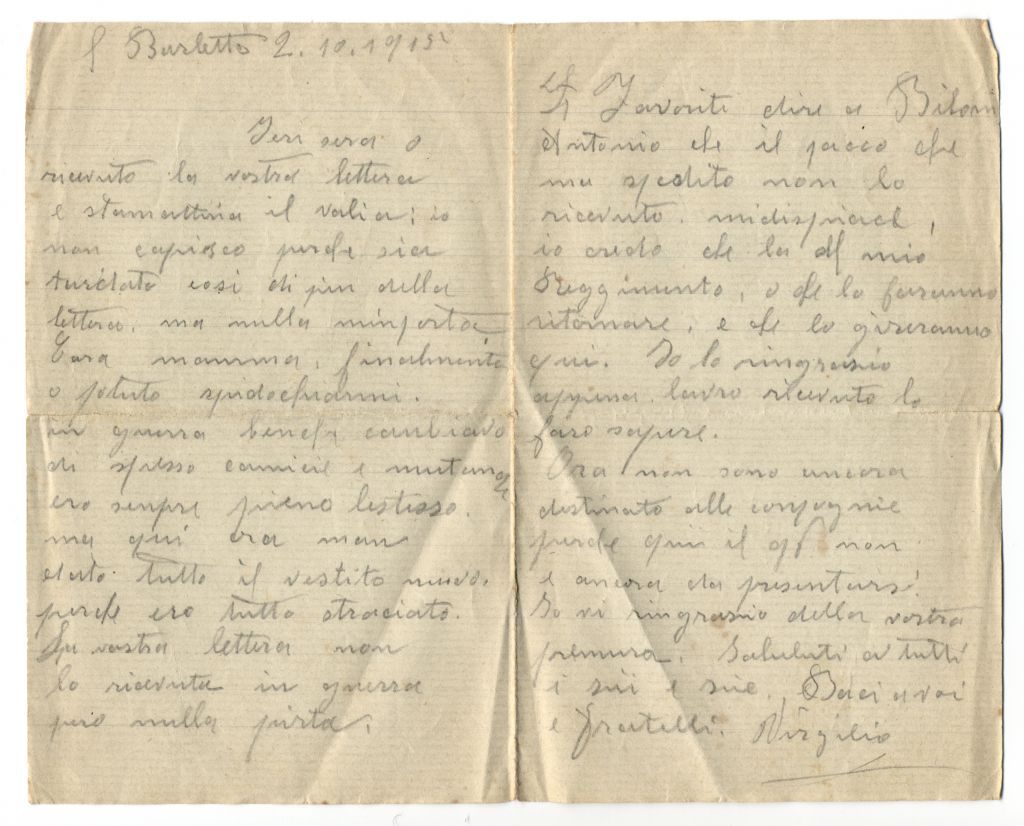 Barletta 2.10.1915
Ieri sera o
ricevuto la vostra lettera
e stamattina il valia; io
non capisco perche sia
tardato cosi di piu della
lettera, ma nulla minporta
Cara mamma, finalmente
o potuto spidochiarmi.
in guerra benche cambiavo
di spesso camicie e mutande
ero senpre pieno lestesso.
ma qui ora man
dato tutto il vestito nuovo.
perche ero tutto straciato.
La vostra lettera non
lo ricevuta in guerra
pero nulla
Favorite dire a Biloni
Antonio che il pacco che
ma spedito non lo
ricevuto. midispiace,
io credo che la al mio
Reggimento, o che lo faranno
ritornare, e che lo gireranno
qui. Io lo ringrasio
appena lavro ricevuto lo
faro sapere.
Ora non sono ancora
destinato alle conpagnie
perche qui il non
e ancora da presentarsi.
Io vi ringrasio della vostra
premura. Saluluti a tutti
i sui e sue. Baci a voi
e fratelli. Virgilio